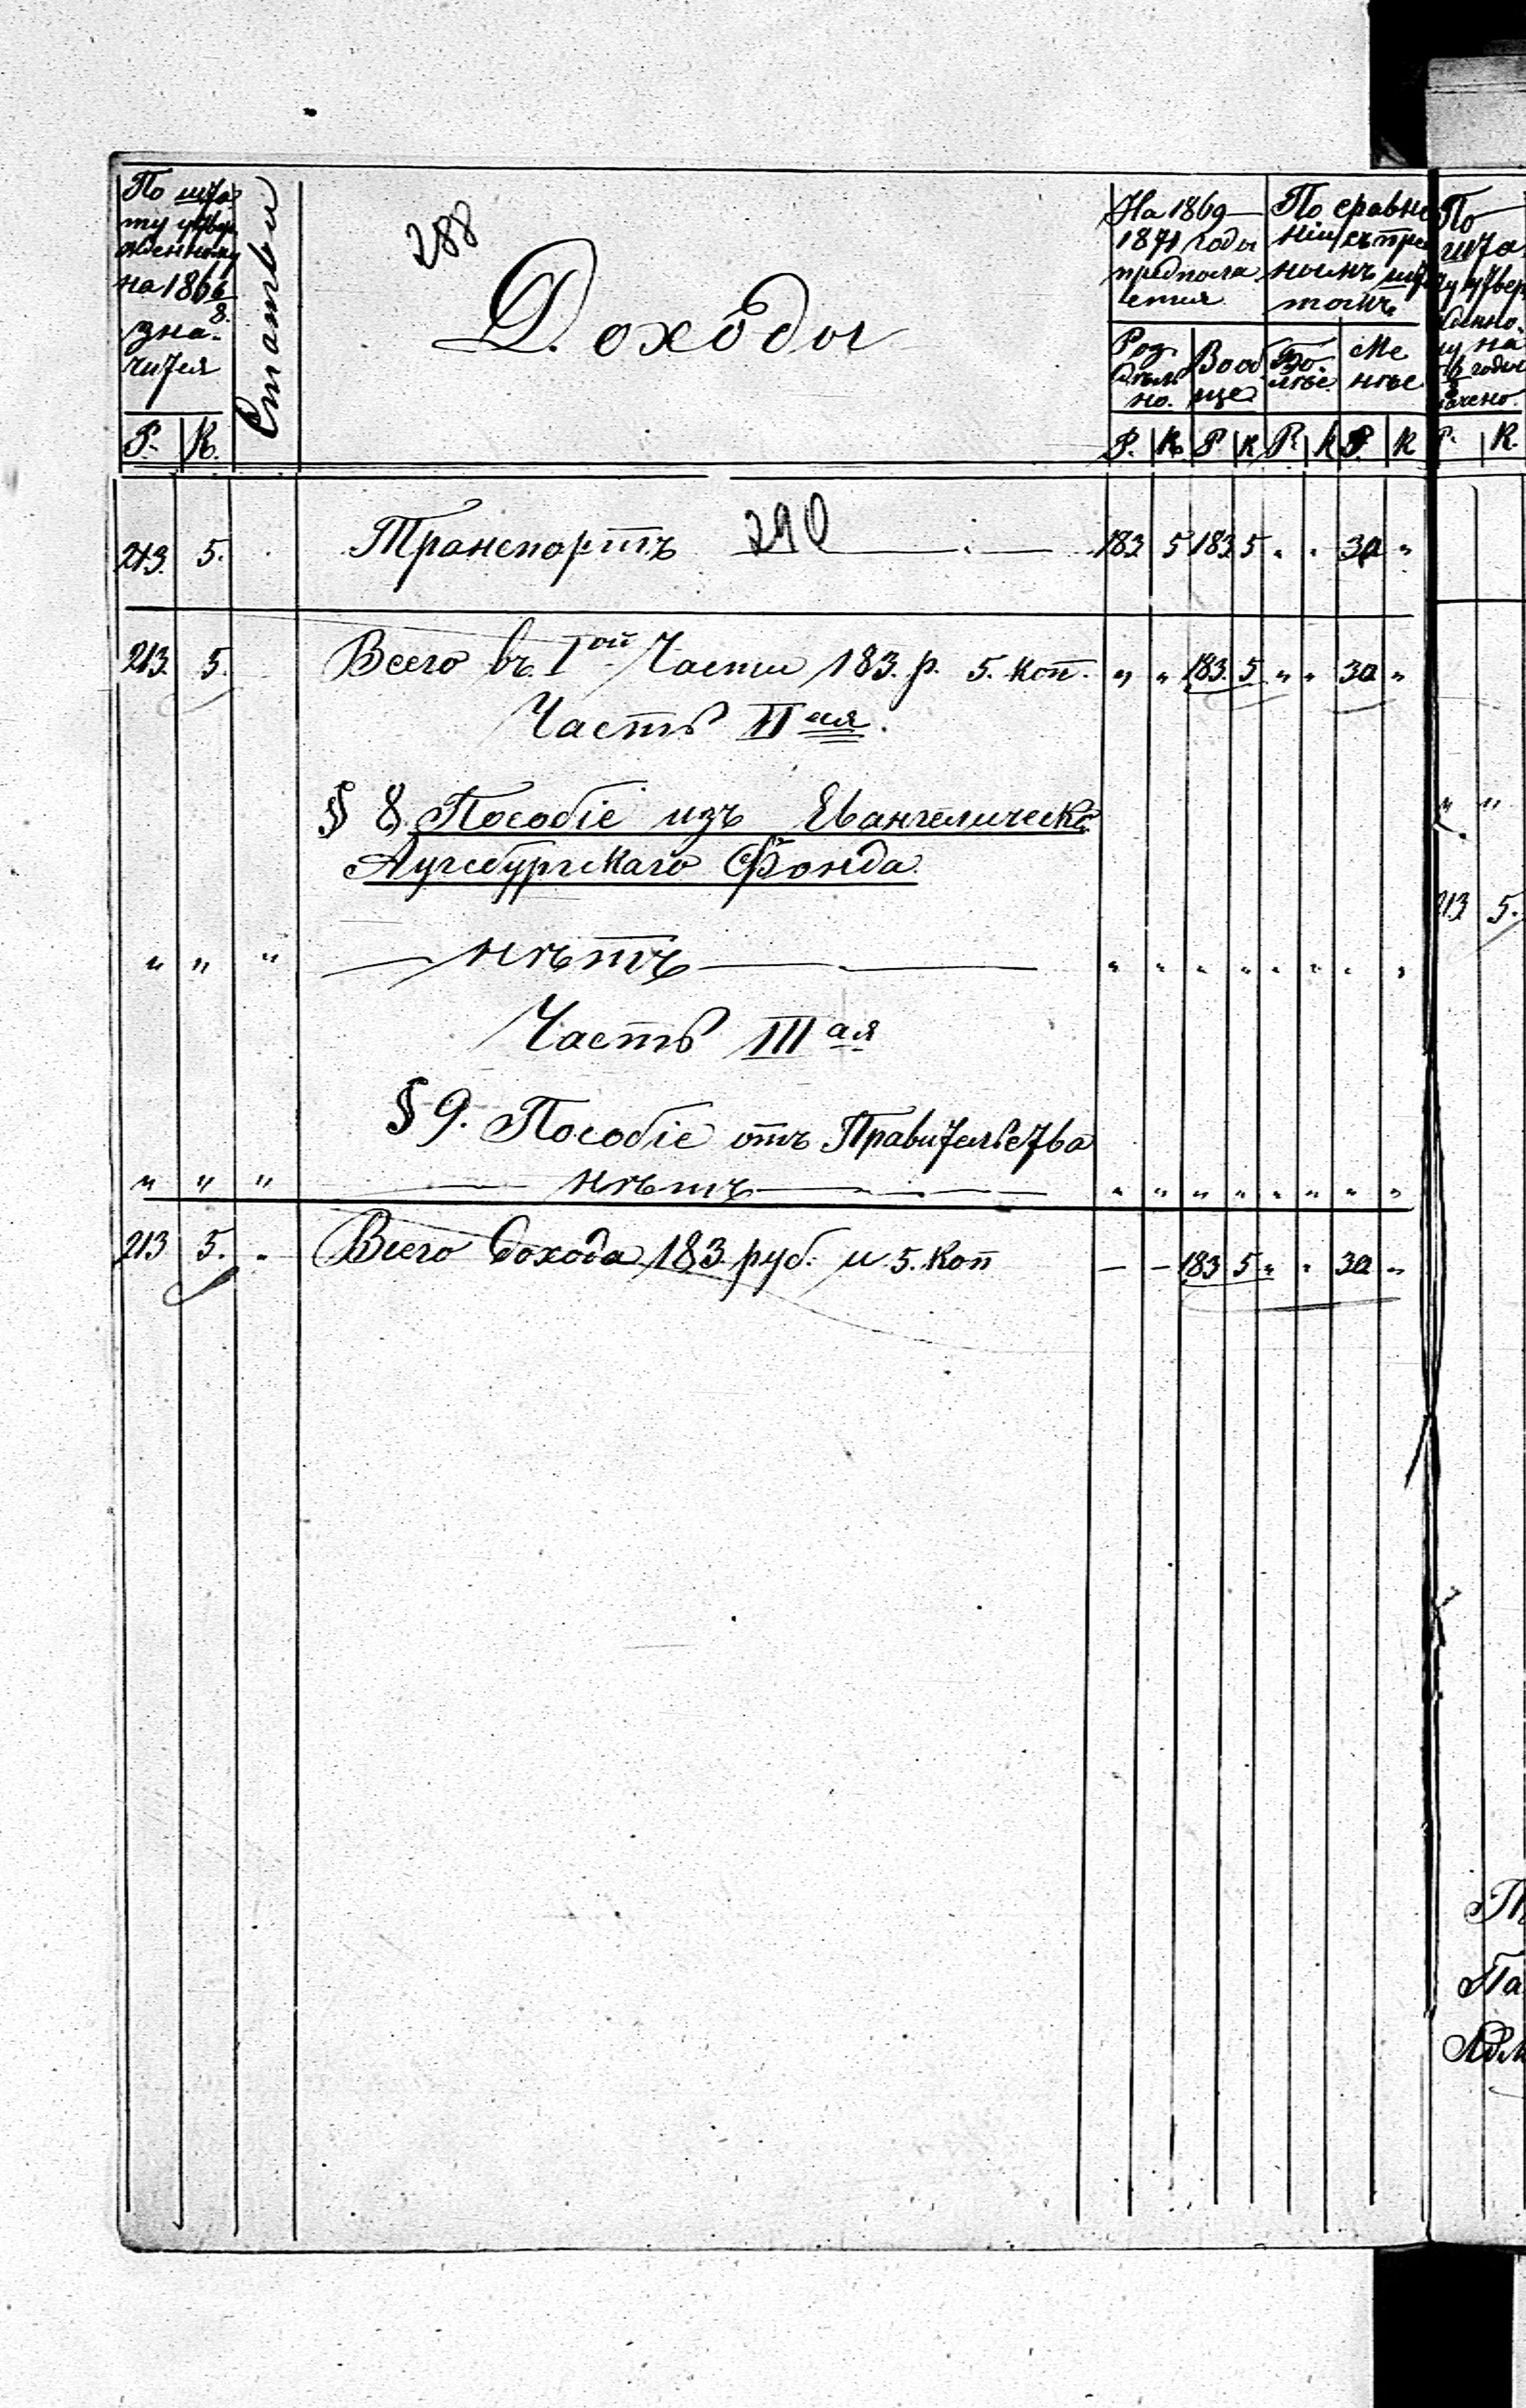 288
По шта
ту утвер
жденному
на 1866/8.
зна-
чится
Р. К.
Статьи
Доходы
На 1869—
1871 годы
предпола
гается
Роз
дѣль
но.
Вооб
ще
По сравне
нію съ пре
жнимъ шта
томъ
Бо-
лѣе
Ме
нѣе
Р. К. Р. К Р. К Р. К
213. 5. Транспортъ 290 183 5 183 5 " " 30 "
213. 5. Всего въ Iой Части 183. р. 5. коп. " " 183. 5 " " 30 "
Часть IIая.
§ 8. Пособіе изъ Евангелическо
Аугсбургскаго Фонда.
" " " нѣтъ " " " " " " " "
Часть IIIая
§ 9. Пособіе отъ Правительства
" " " нѣтъ " " " " " " " "
213 5. " Всего дохода 183 руб. и 5. Коп — — 183 5 " " 30 "
По
шта
ту утвер
ждено.
му на
Р. К.
" "
213 5.